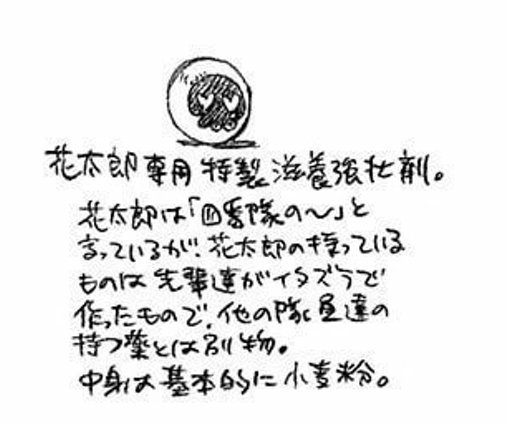 花太郎専用特製滋養強壮剤。
花太郎は「四番隊の〜」と
言っているが、花太郎の持っている
ものは先輩達がイタズラで
作ったもので、他の隊員達の
持つ薬とは別物。
中身は基本的に小麦粉。